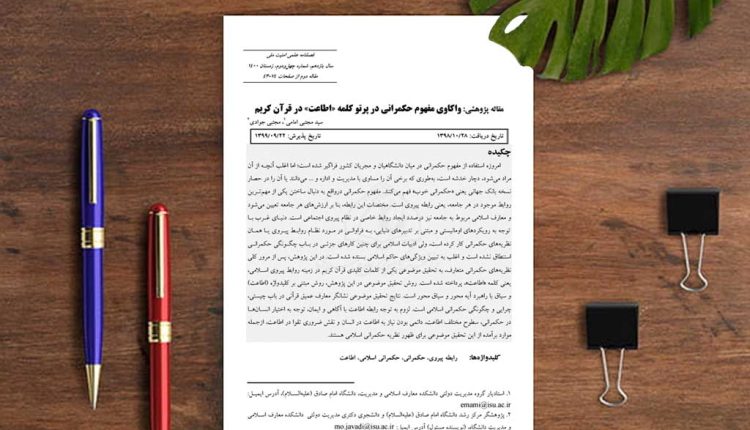 فصلنامه علمی امنیت ملی
سال یازدهم، شماره چهل‌ودوم، زمستان ۱۴۰۰
مقاله دوم از صفحات
مقاله پژوهشی: واکاوی مفهوم حکمرانی در پرتو کلمه «اطاعت» در قرآن کریم
سید مجتبی امامی۱، مجتبی جوادی۲
تاریخ دریافت: ۱۳۹۸/۱۰/۲۸ تاریخ پذیرش: ۱۳۹۹/۰۹/۲۲
چکیده
امروزه استفاده از مفهوم حکمرانی در میان دانشگاهیان و مجریان کشور فراگیر شده است؛ اما اغلب آنچه از آن
مراد می‌شود، دچار خدشه است، به‌طوری که برخی آن را مساوی با مدیریت و اداره و ... می‌دانند یا آن را در حصار
نسخه بانک جهانی یعنی «حکمرانی خوب» فهم می‌کنند. مفهوم حکمرانی درواقع به دنبال ساختن یکی از مهم‌ترین
روابط موجود در هر جامعه، یعنی رابطه پیروی است. مختصات این رابطه، بنا بر ارزش‌های هر جامعه تعیین می‌شود
و معارف اسلامی مربوط به جامعه نیز درصدد ایجاد روابط خاصی در نظام پیروی اجتماعی است. دنیای غرب با
توجه به رویکردهای اومانیستی و مبتنی بر تدبیرهای دنیایی، به فراوانی در مورد نظام روابط پیروی با همان
نظریه‌های حکمرانی کار کرده است، ولی ادبیات اسلامی برای چنین کارهای جزئی در باب چگونگی حکمرانی
استنطاق نشده است و اغلب به تبیین ویژگی‌های حاکم اسلامی بسنده شده است. در این پژوهش، پس از مرور کلی
نظریه‌های حکمرانی متعارف، به تحقیق موضوعی یکی از کلمات کلیدی قرآن کریم در زمینه روابط پیروی اسلامی،
یعنی کلمه «اطاعت»، پرداخته شده است. روش تحقیق موضوعی در این پژوهش، روش مبتنی بر کلیدواژه (اطاعت)
و سیاق با راهبرد آیه محور و سیاق محور است. نتایج تحقیق موضوعی نشانگر معارف عمیق قرآنی در باب چیستی،
چرایی و چگونگی حکمرانی اسلامی است. لزوم به توجه رابطه اطاعت با آگاهی و ایمان، توجه به اختیار انسان‌ها
در حکمرانی، سطوح مختلف اطاعت، دائمی بودن نیاز به اطاعت در انسان و نقش ضروری تقوا در اطاعت، ازجمله
موارد برآمده از این تحقیق موضوعی برای ظهور نظریه حکمرانی اسلامی هستند.
کلیدواژه‌ها: رابطه پیروی، حکمرانی، حکمرانی اسلامی، اطاعت
۱. استادیار گروه مدیریت دولتی دانشکده معارف اسلامی و مدیریت، دانشگاه امام صادق (علیه‌السلام)، آدرس ایمیل:
emami@isu.ac.ir
۲. پژوهشگر مرکز رشد دانشگاه امام صادق (علیه‌السلام) و دانشجوی دکتری مدیریت دولتی دانشکده معارف اسلامی
و مدیریت دانشگاه، (نویسنده مسئول) آدرس ایمیل: mo.javadi@isu.ac.ir